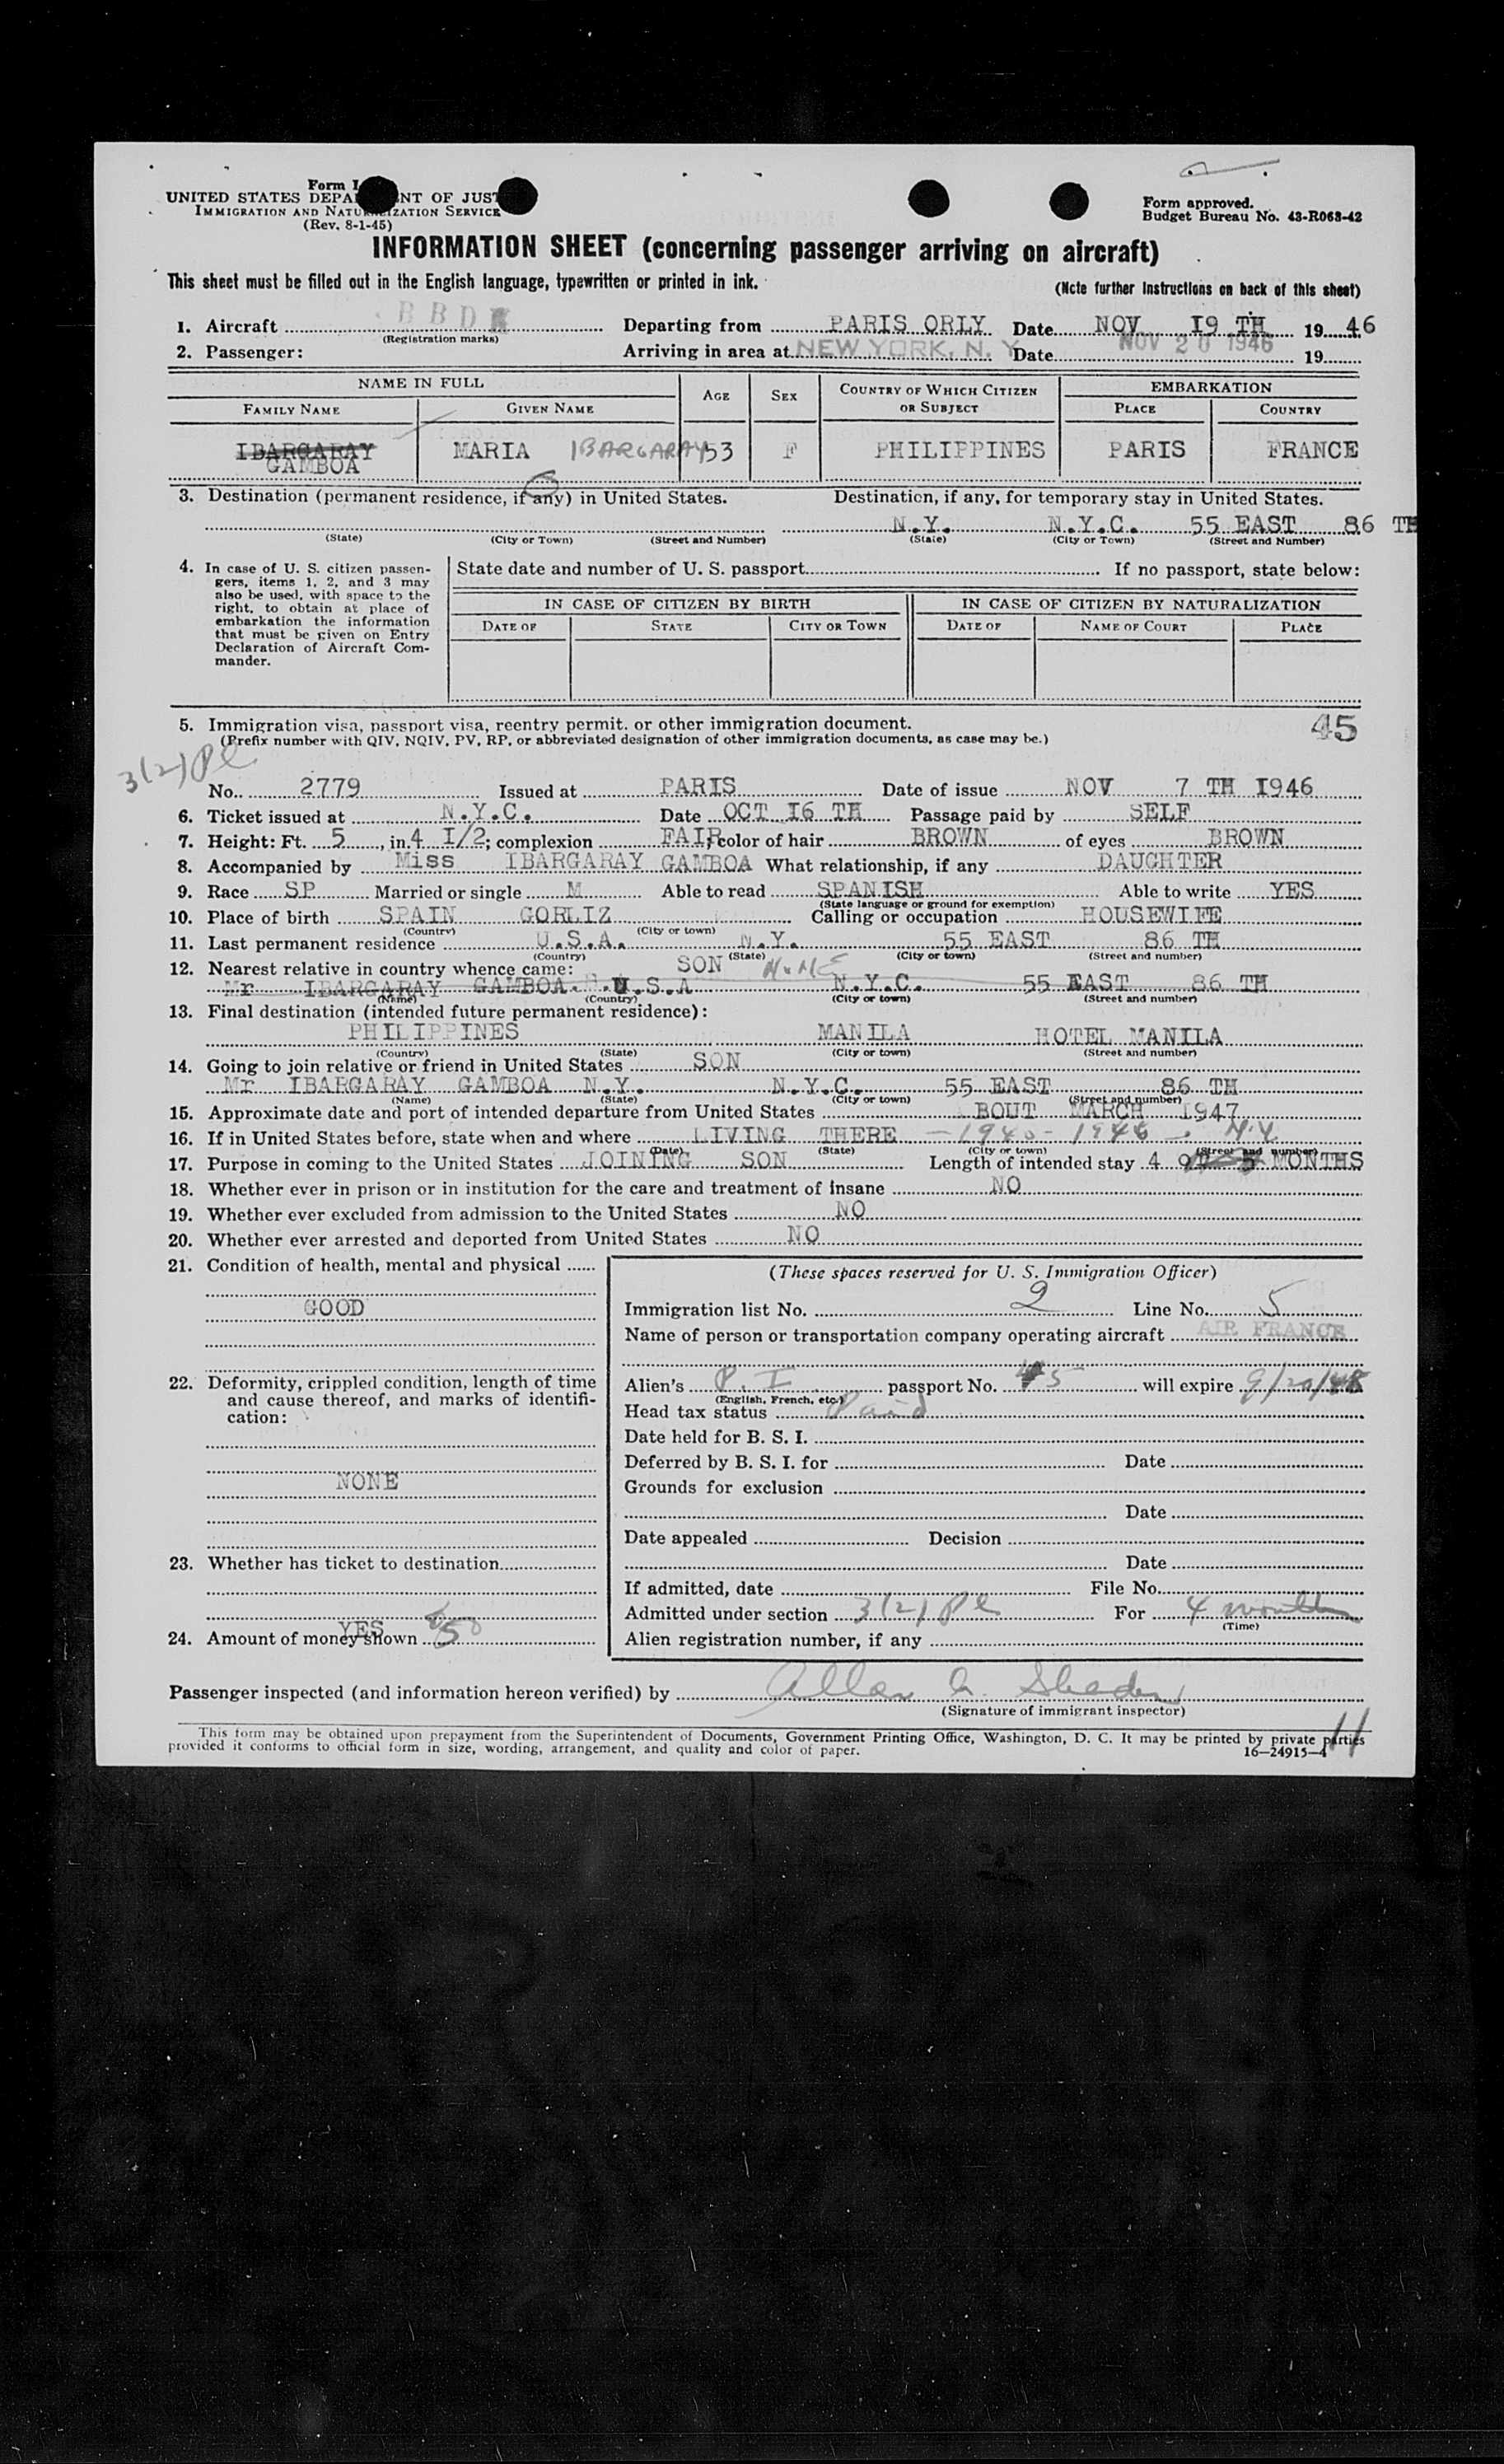 Form I
UNITED STATES DEPA NT OF JUST
IMMIGRATION AND NATURALIZATION SERVICE
(Rev. 8-1-45)
Form approved.
Budget Bureau No. 43-R063-42
INFORMATION SHEET (concerning passenger arriving on aircraft)
This sheet must be filled out in the English language, typewritten or printed in ink.
(Note further instructions on back of this sheet)
1. Aircraft BBD Departing from PARIS ORLY Date NOV 19 TH 1946
(Registration marks)
2. Passenger: Arriving in area at NEW YORK, N. Y. Date NOV 20 1946 19
NAME IN FULL AGE SEX COUNTRY OF WHICH CITIZEN OR SUBJECT EMBARKATION
FAMILY NAME GIVEN NAME PLACE COUNTRY
IBARGARAY
GAMBOA MARIA IBARGARAY 53 F PHILIPPINES PARIS FRANCE
3. Destination (permanent residence, if any) in United States. Destination, if any, for temporary stay in United States.
N.Y. N.Y.C. 55 EAST 86 TH
(State) (City or Town) (Street and Number) (State) (City or Town) (Street and Number)
4. In case of U. S. citizen passengers, items 1, 2, and 3 may also be used, with space to the right, to obtain at place of embarkation the information that must be given on Entry Declaration of Aircraft Commander.
State date and number of U. S. passport If no passport, state below:
IN CASE OF CITIZEN BY BIRTH IN CASE OF CITIZEN BY NATURALIZATION
DATE OF STATE CITY OR TOWN DATE OF NAME OF COURT PLACE
5. Immigration visa, passport visa, reentry permit, or other immigration document. 45
(Prefix number with QIV, NQIV, PV, RP, or abbreviated designation of other immigration documents, as case may be.)
3(2) Pl
No. 2779 Issued at PARIS Date of issue NOV 7 TH I946
6. Ticket issued at N.Y.C. Date OCT I6 TH Passage paid by SELF
7. Height: Ft. 5, in. 4 I/2; complexion FAIR; color of hair BROWN of eyes BROWN
8. Accompanied by Miss IBARGARAY GAMBOA What relationship, if any DAUGHTER
9. Race SP Married or single M Able to read SPANISH Able to write YES
(State language or ground for exemption)
10. Place of birth SPAIN GORLIZ Calling or occupation HOUSEWIFE
(Country) (City or town)
11. Last permanent residence U.S.A. N.Y. 55 EAST 86 TH
(Country) (State) (City or town) (Street and number)
12. Nearest relative in country whence came: SON NONE
Mr IBARGARAY GAMBOA. U.S.A N.Y.C. 55 EAST 86 TH
(Name) (Country) (City or town) (Street and number)
13. Final destination (intended future permanent residence):
PHILIPPINES MANILA HOTEL MANILA
(Country) (State) (City or town) (Street and number)
14. Going to join relative or friend in United States SON
Mr IBARGARAY GAMBOA N.Y. N.Y.C. 55 EAST 86 TH
(Name) (State) (City or town) (Street and number)
15. Approximate date and port of intended departure from United States BOUT MARCH 1947
16. If in United States before, state when and where LIVING THERE - 1940 - 1946 - N.Y
(Date) (State) (City or town) (Street and number)
17. Purpose in coming to the United States JOINING SON Length of intended stay 4 5 MONTHS
18. Whether ever in prison or in institution for the care and treatment of insane NO
19. Whether ever excluded from admission to the United States NO
20. Whether ever arrested and deported from United States NO
21. Condition of health, mental and physical
GOOD
22. Deformity, crippled condition, length of time and cause thereof, and marks of identification:
NONE
23. Whether has ticket to destination
YES
24. Amount of money shown
(These spaces reserved for U. S. Immigration Officer)
Immigration list No. 2 Line No. 5
Name of person or transportation company operating aircraft AIR FRANCE
Alien's P. I. passport No. 45 will expire 9/20/48
(English, French, etc.)
Head tax status Paid
Date held for B. S. I.
Deferred by B. S. I. for Date
Grounds for exclusion
Date
Date appealed Decision
Date
If admitted, date File No.
Admitted under section 3(2) Pl For 4 months
(Time)
Alien registration number, if any
Passenger inspected (and information hereon verified) by
(Signature of immigrant inspector)
This form may be obtained upon prepayment from the Superintendent of Documents, Government Printing Office, Washington, D. C. It may be printed by private parties
provided it conforms to official form in size, wording, arrangement, and quality and color of paper. 16—24915-4
11